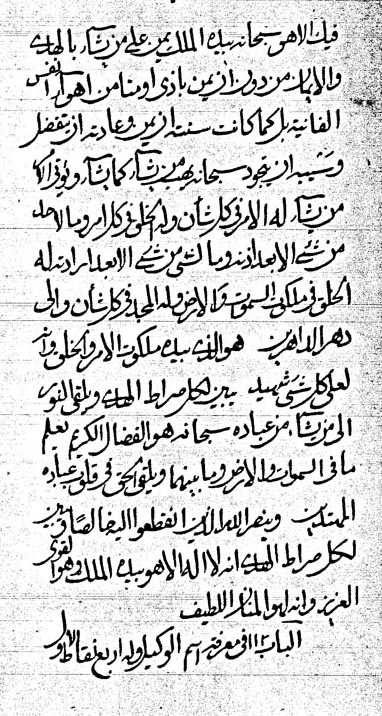 فيك الا هو سبحانه بيده الملك يمن على من يشاء بالهدى
والايمان من دون ان يمن باذى او منا من اهواء النفس
الفانية بل كما كانت سنته ان يمن وعادته ان يتفضل
وشيمه ان يجود سبحانه يهب من يشاء كما يشاء ويؤتى
من يشاء له الامر فى كل شأن وله الخلق فى كل امر وما لاحد
من شئ الا بعد اذنه وما لشئ من شئ الا بعد ارادته له
الخلق فى ملكوت السموات والارض وله المجد فى كل شأن والى
دهر الداهرين هو الذى بيده ملكوت الامر والخلق وانه
لعلى كل شئ شهيد يبين لكل صراط الهدى ويلقى النور
الى من يشاء من عباده سبحانه هو الفضال الكريم يعلم
ما فى السموات والارض وما بينهما ويلقى الحق فى قلوب عباده
المهتدين وينصر الله الذين انقطعوا اليه خالصا ويبين
لكل صراط الهدى انه لا اله الا هو بيده الملك وهو القوى
العزيز وانه لهو المنان اللطيف
الباب ١٢ فى معرفة اسم الوكيل وله اربع نقاط الاول